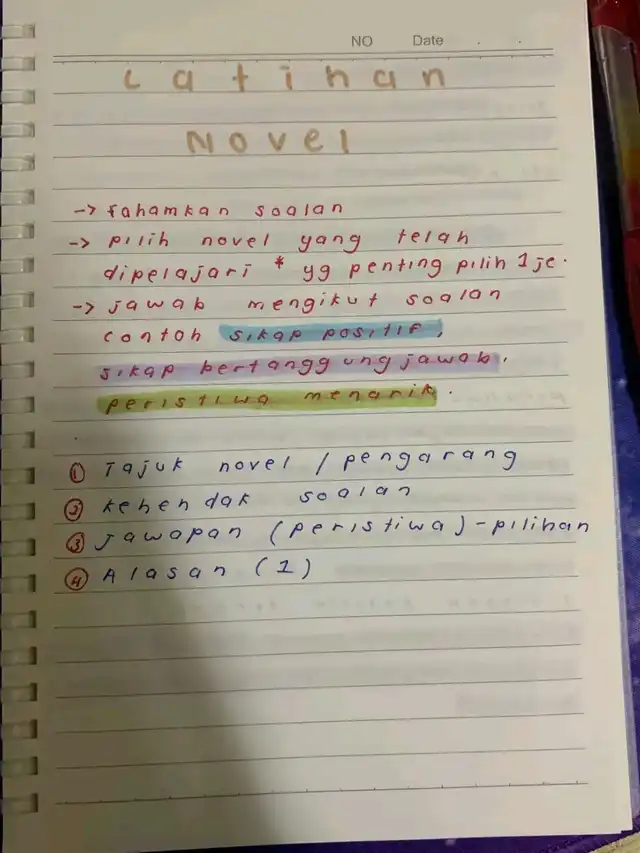 NO Date . .
Latihan
Novel
-> fahamkan soalan
-> pilih novel yang telah
dipelajari * yg penting pilih 1 je.
-> jawab mengikut soalan
contoh sikap positif,
sikap bertanggungjawab.
peristiwa menarik.
① Tajuk novel / pengarang
② kehendak soalan
③ Jawapan (peristiwa) - pilihan
④ Alasan (1)